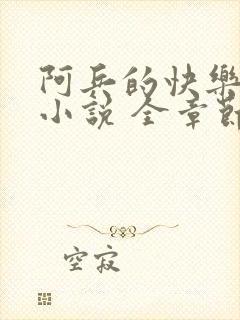 阿兵的快樂
小說 全章節
空寂